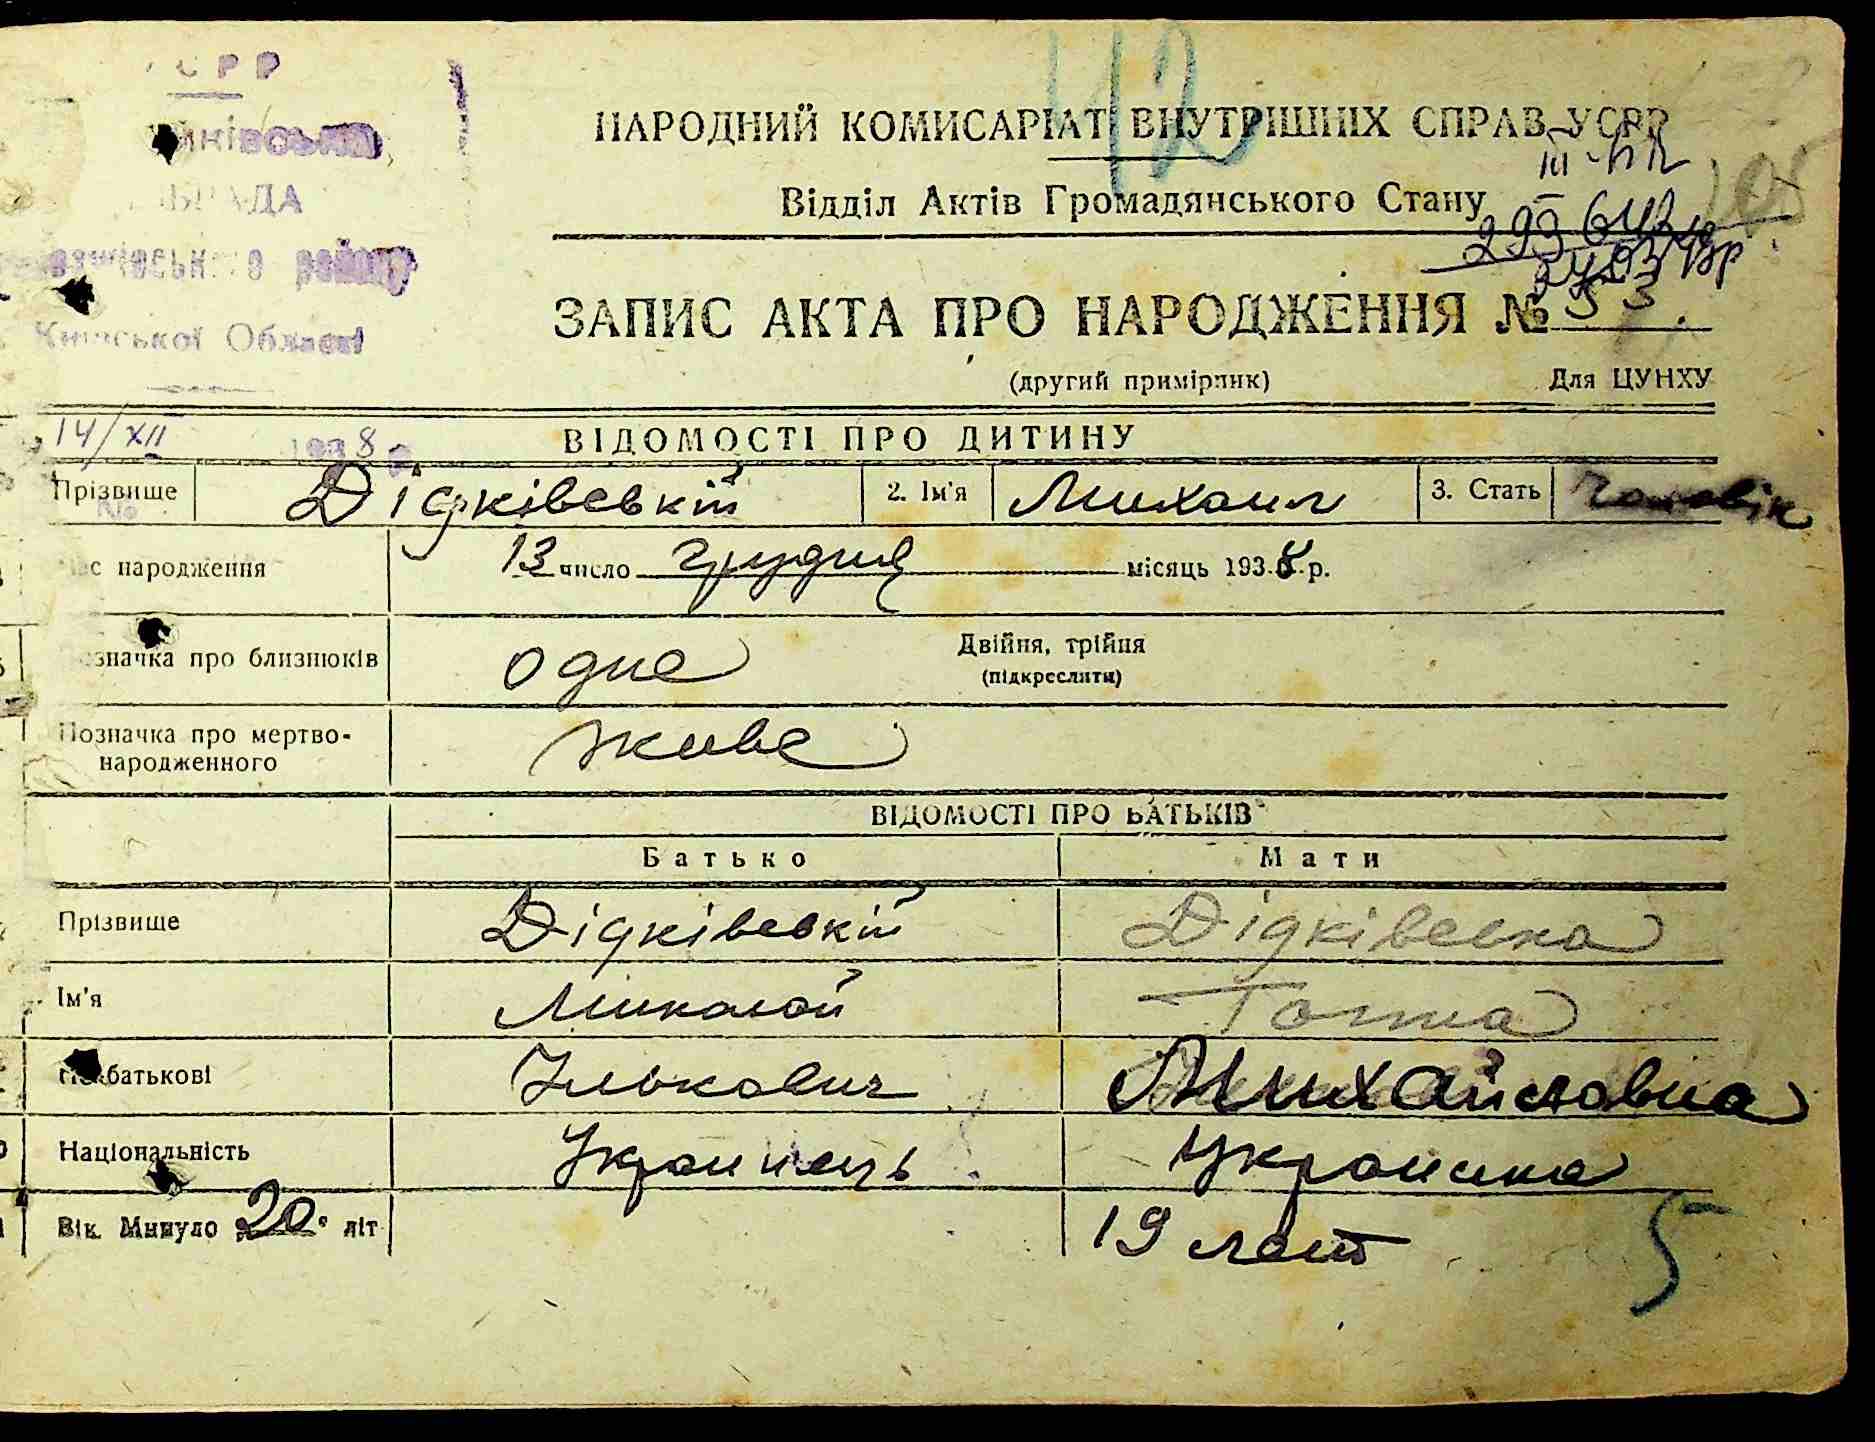 УСРР
НАРОДНИЙ КОМИСАРІАТ ВНУТРІШНІХ СПРАВ УСРР
Відділ Актів Громадянського Стану
Київської Області
ЗАПИС АКТА ПРО НАРОДЖЕННЯ № 53
(другий примірник) Для ЦУНХУ
14/XII 1938
ВІДОМОСТІ ПРО ДИТИНУ
Прізвище Дідківський 2. Ім'я Михаил 3. Стать Чоловік
Час народження 13 число грудня місяць 1938 р.
Позначка про близнюків одне Двійня, трійня
(підкреслити)
Позначка про мертво-
народженного живе
ВІДОМОСТІ ПРО БАТЬКІВ
Батько Мати
Прізвище Дідківській Дідківська
Ім'я Миколай Ганна
По батькові Ількович Михайловна
Національність Украинець Украинка
Вік. Минуло 20 літ 19 лет
5